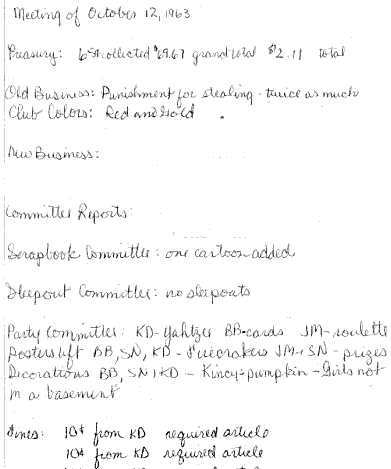 Meeting of October 12, 1963
Treasury: 65¢ collected $69.67 grand total $2.11 total
Old Business: Punishment for stealing - twice as much
Club Colors: Red and Gold.
New Business:
Committee Reports:
Scrapbook Committee: one cartoon added
Sleepout Committee: no sleepouts
Party Committee: KD-Yahtzee BB-cards JM-roulette
Posters left BB, SN, KD - JM+SN - prizes
Decorations BB, SN, KD - pumpkin - Girls not
in a basement
Fines: 10¢ from KD required article
10¢ from KD required article